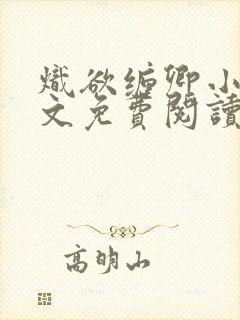 熾欲缠卿小
文免費閱讀
高明山